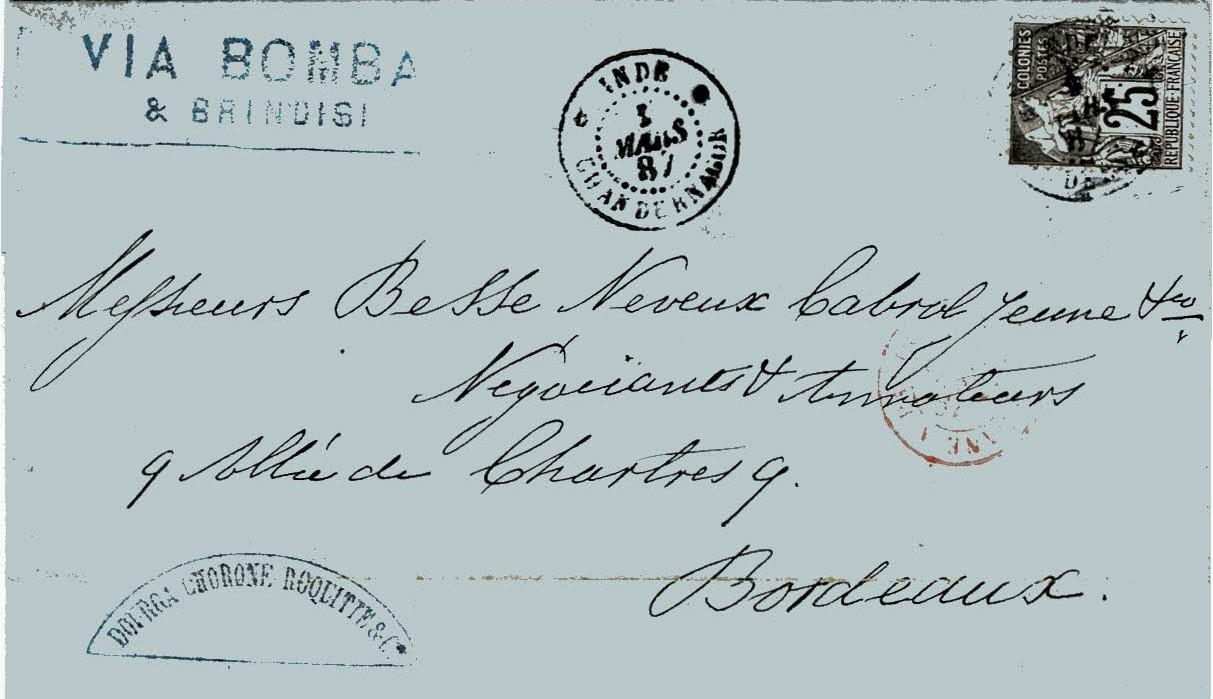 VIA BOMBA
& BRINDISI
INDE
1
MARS
87
CHANDERNAGOR
COLONIES
POSTES
25
REPUBLIQUE FRANÇAISE
Messieurs Besse Neveux Cabrol Jeune & Co
Négociants & Armateurs
9 Allée de Chartres 9.
Bordeaux.
DOURGA CHORONE ROQUITTE & Cie